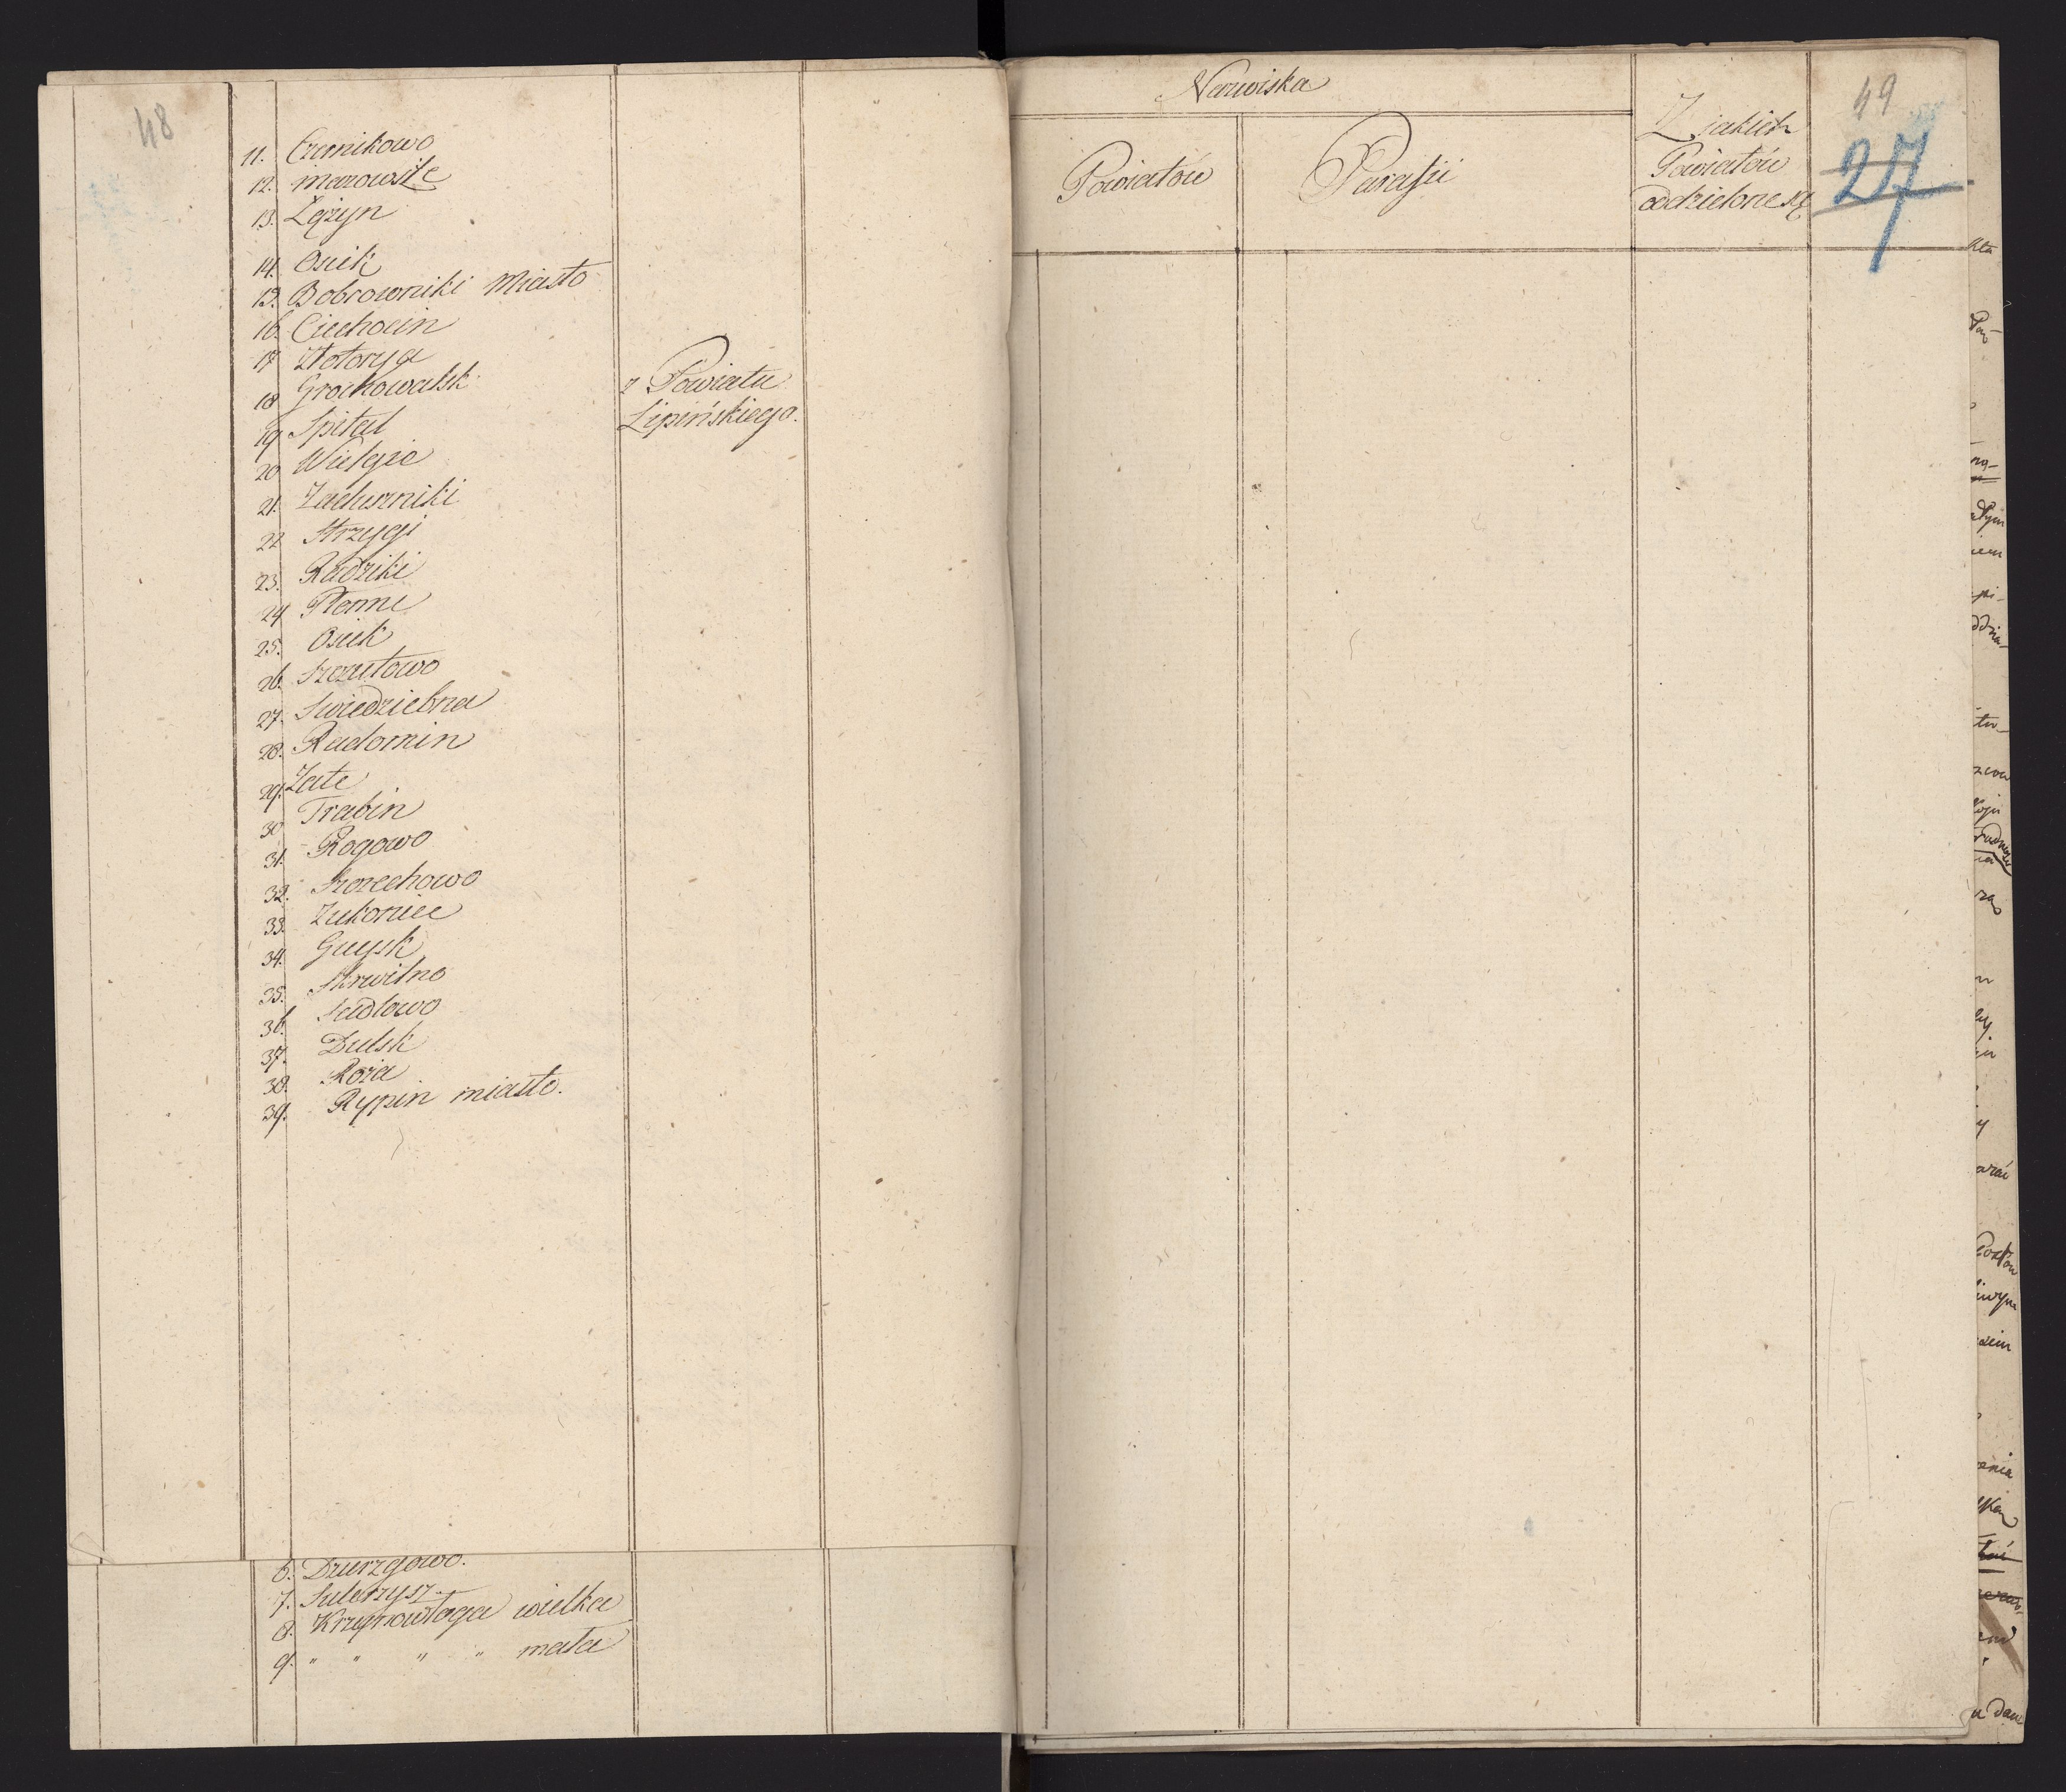 48
11. Czernikowo
12. Mazowsze
13. Łążyn
14. Osiek
15. Bobrowniki Miasto
16. Ciechocin
17 Złotorya
18 Grochowalsk
z Powiatu
Lipińskiego.
19 Szpital
20 Wielgie
21. Zaduszniki
22 Strzygi
23. Radziki
24 Płonne
25. Osiek
26. Szczutowo
27. Swiedziebna
28. Radomin
29. Żałe
30 Trąbin
31. Rogowo
32. Szorechowo
33. Żukoniec
34. Gujsk
35. Skrwilno
36. Sadłowo
37. Dulsk
38. Róża
39. Rypin miasto.
6. Dzierzgowo.
7. Sulerzysz
8. Krzynowłoga wielka
9. " " " " mała
Nazwiska
Powiatów
Parafii
Z jakich
Powiatów
oddzielone są
49
27